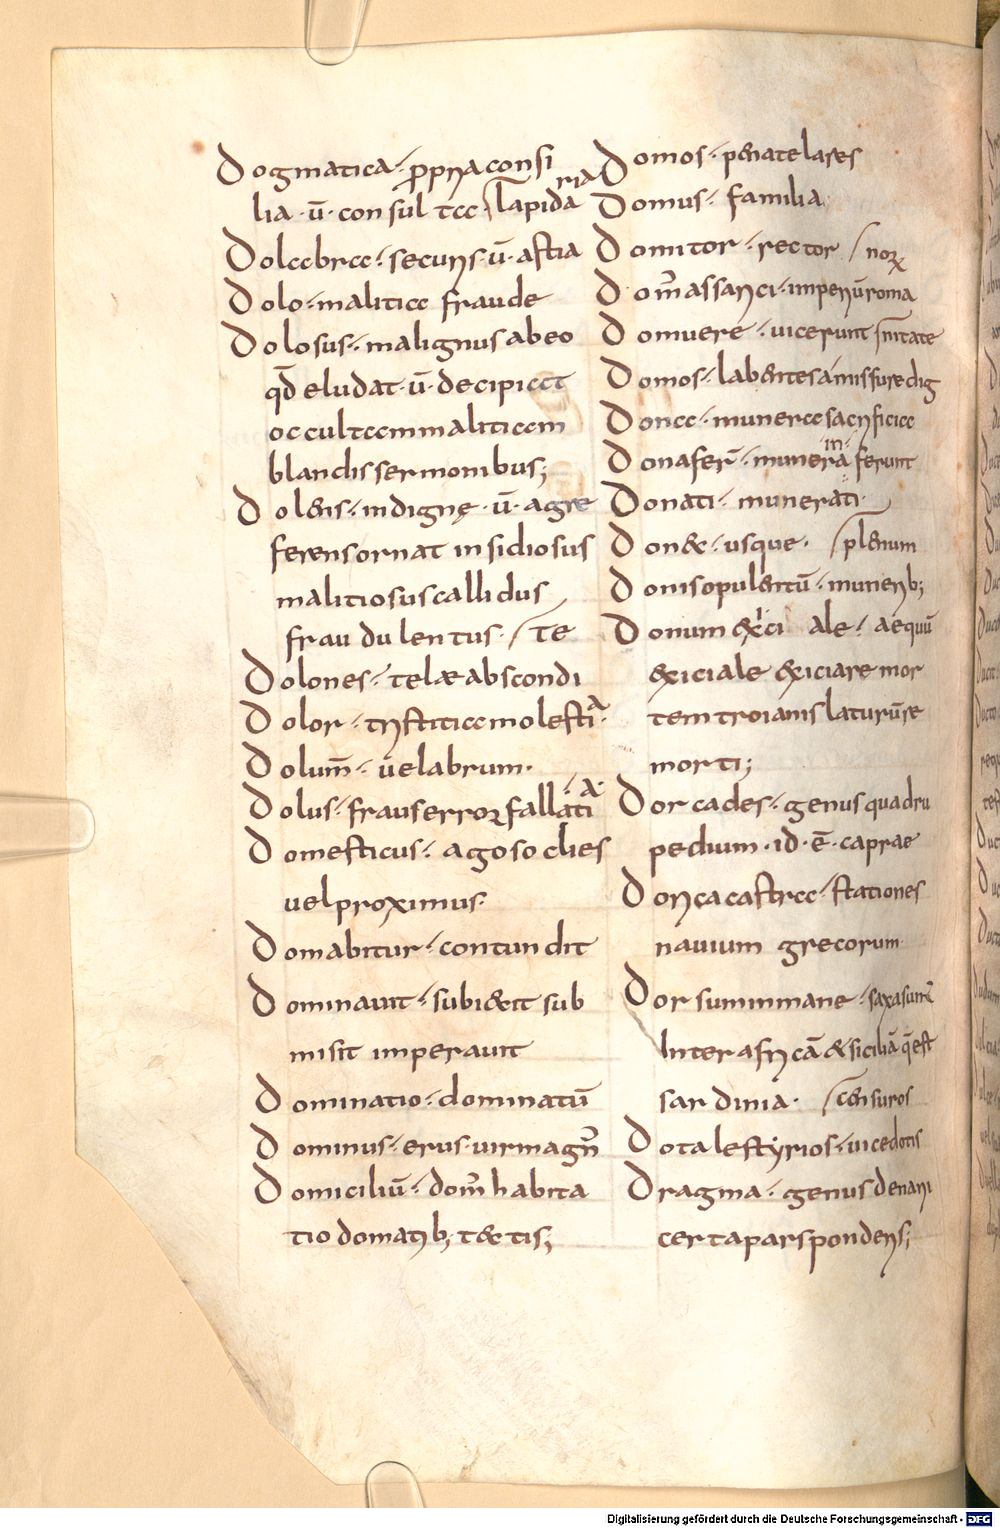 Dogmatica · ꝓpria consi
lia · ū · consulta · / lapida ria
Dolabra · securis ū · astia
Dolo · malitia fraude
Dolosus · malignus ab eo
qđ eludat · ū · decipiat
occultam malitiam
blandis sermonibus;
Dolens · indignę · ū · agre
ferens ornat insidiosus
malitiosus callidus
fraudulentus · / te
Dolones · telæ abscondi
Dolor · tristitia molestia ·
Dolum̄ · uelabrum ·
Dolus · fraus error fallatia ·
Domesticus · agoso clies
uel proximus ·
Domabitur · contundit
Dominauit · subi&it sub
misit imperauit
Dominatio · dominatū
Dominus · erus · uir magn̄
Domiciliū · dom̄ habita
tio domatib; t&tis;
Domos · penate lares
Domus · familia
Domitor · rector / noꝝ
Dom̄ assarici · imperiū roma
Domuere · uicerunt / nitate
Domos · labentes amissure dig
Dona · munera sacrificia
Dona fer̄ · munera in ferunt
Donati · munerati ·
Don& · usque · / plenum
Donis opulentū · munerib;
Donum &ici ale · aequū
&iciale &iciare mor
tem troianis laturū re
morti;
Dorcades · genus quadru
pedium · id · ē · caprae
Dorica castra · stationes
nauium grecorum
Dorsum inmane · saxa sunt
Inter africā & siciliā q̄ est
sardinia · / censuros
Dotales tyrios · uice dotis
Dragma · genus denarii
certa pars ponderis;
Digitalisierung gefördert durch die Deutsche Forschungsgemeinschaft - DFG